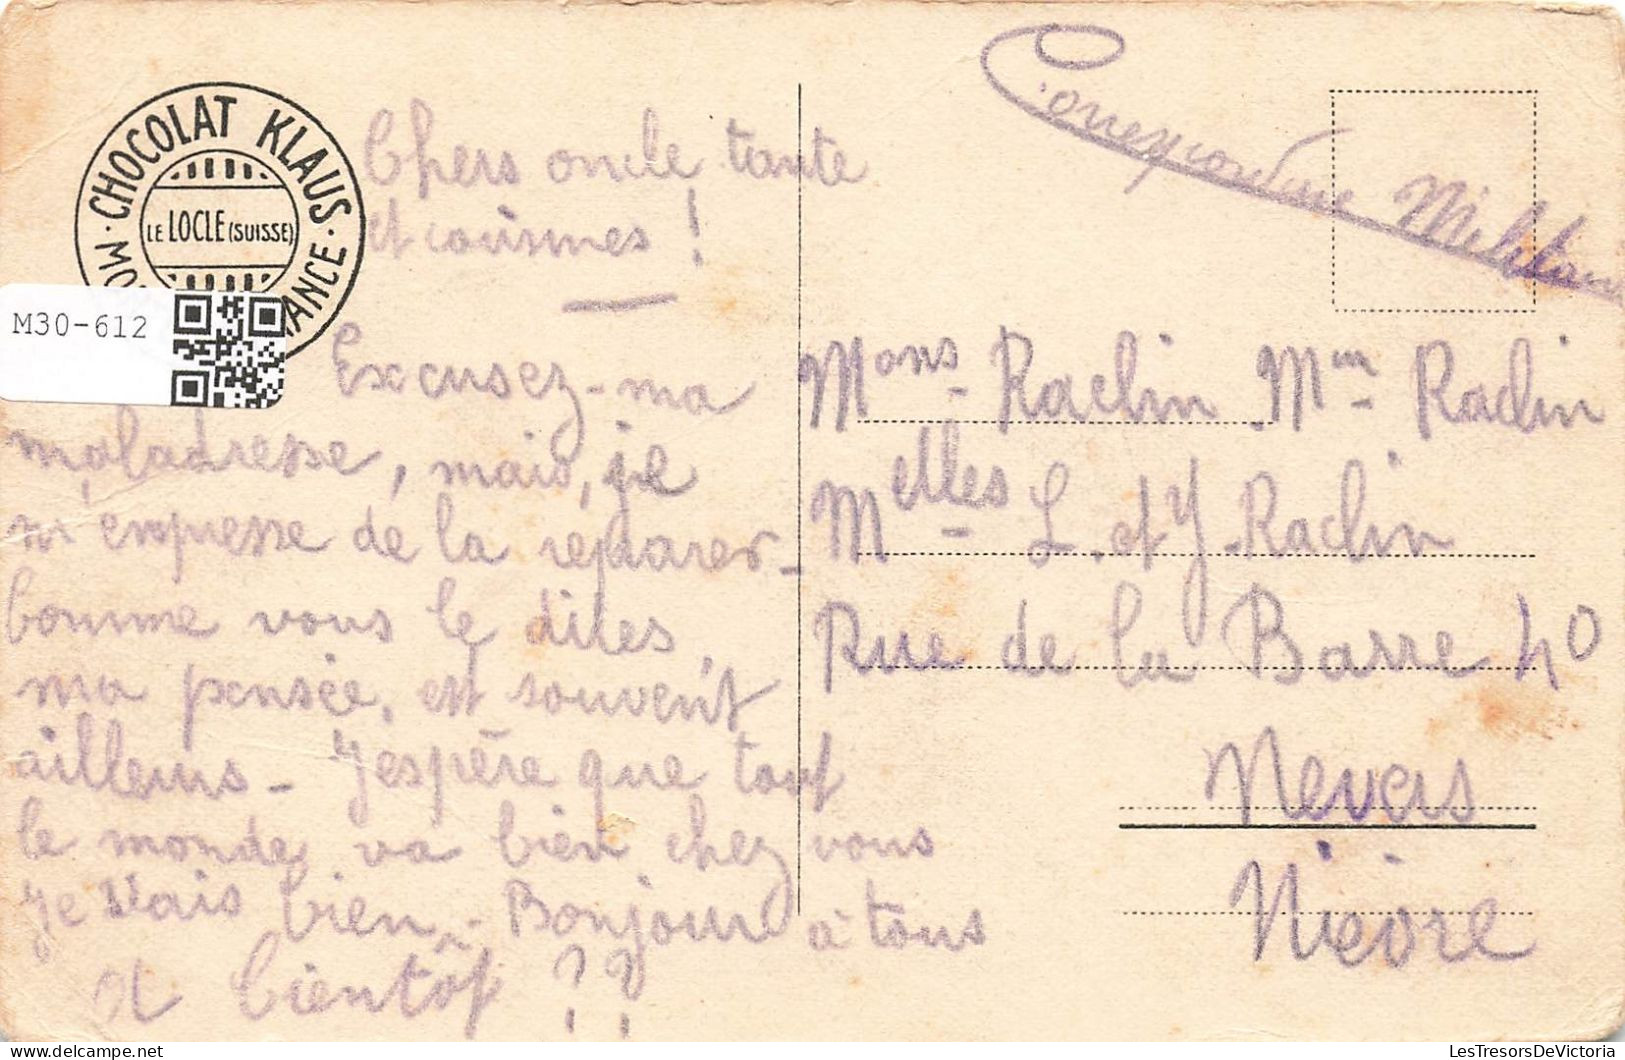 CHOCOLAT KLAUS
LE LOCLE (SUISSE)
M30-612
Chers oncle tante
et cousines !
Excusez-ma
maladresse, mais, je
m'empresse de la réparer-
Comme vous le dites,
ma pensée, est souvent
ailleurs - J'espère que tout
le monde va bien chez vous
Je vais bien - Bonjour à tous
et bientôt ??
Correspondance Militaire
Mons Raclin Mme Raclin
Melles L. et Y. Raclin
Rue de la Barre 40
Nevers
Nièvre
LesTresorsDeVictoria.com